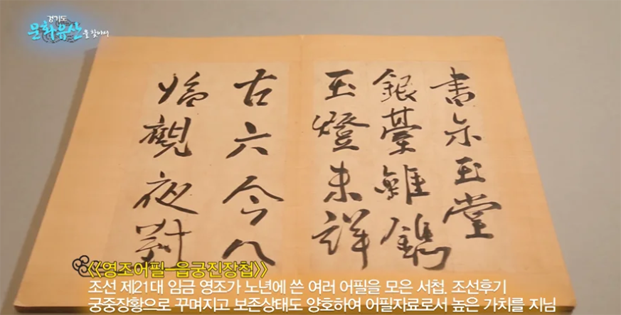 경기도
문화유산을 찾아서
書示玉堂
銀臺雖鐫
玉燈未詳
古六今八
始觀夜對
《영조어필-읍궁진장첩》
조선 제21대 임금 영조가 노년에 쓴 여러 어필을 모은 서첩, 조선후기
궁중장황으로 꾸며지고 보존상태도 양호하여 어필자료로서 높은 가치를 지님